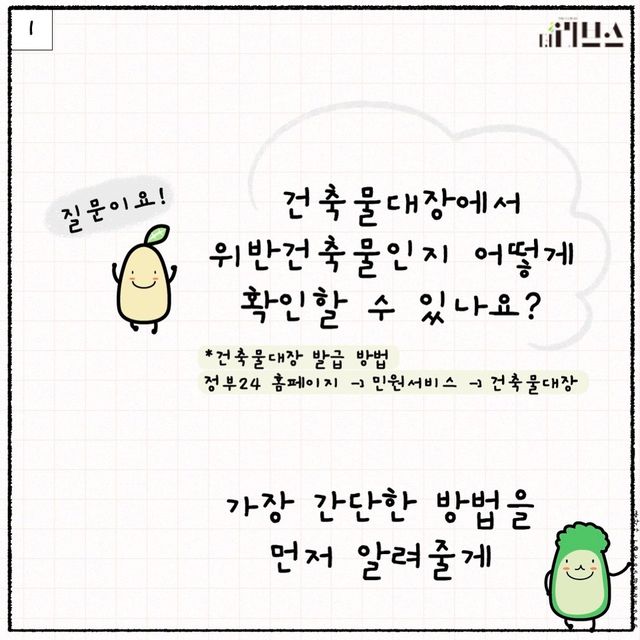 1
질문이요!
건축물대장에서
위반건축물인지 어떻게
확인할 수 있나요?
*건축물대장 발급 방법
정부24 홈페이지 → 민원서비스 → 건축물대장
가장 간단한 방법을
먼저 알려줄게